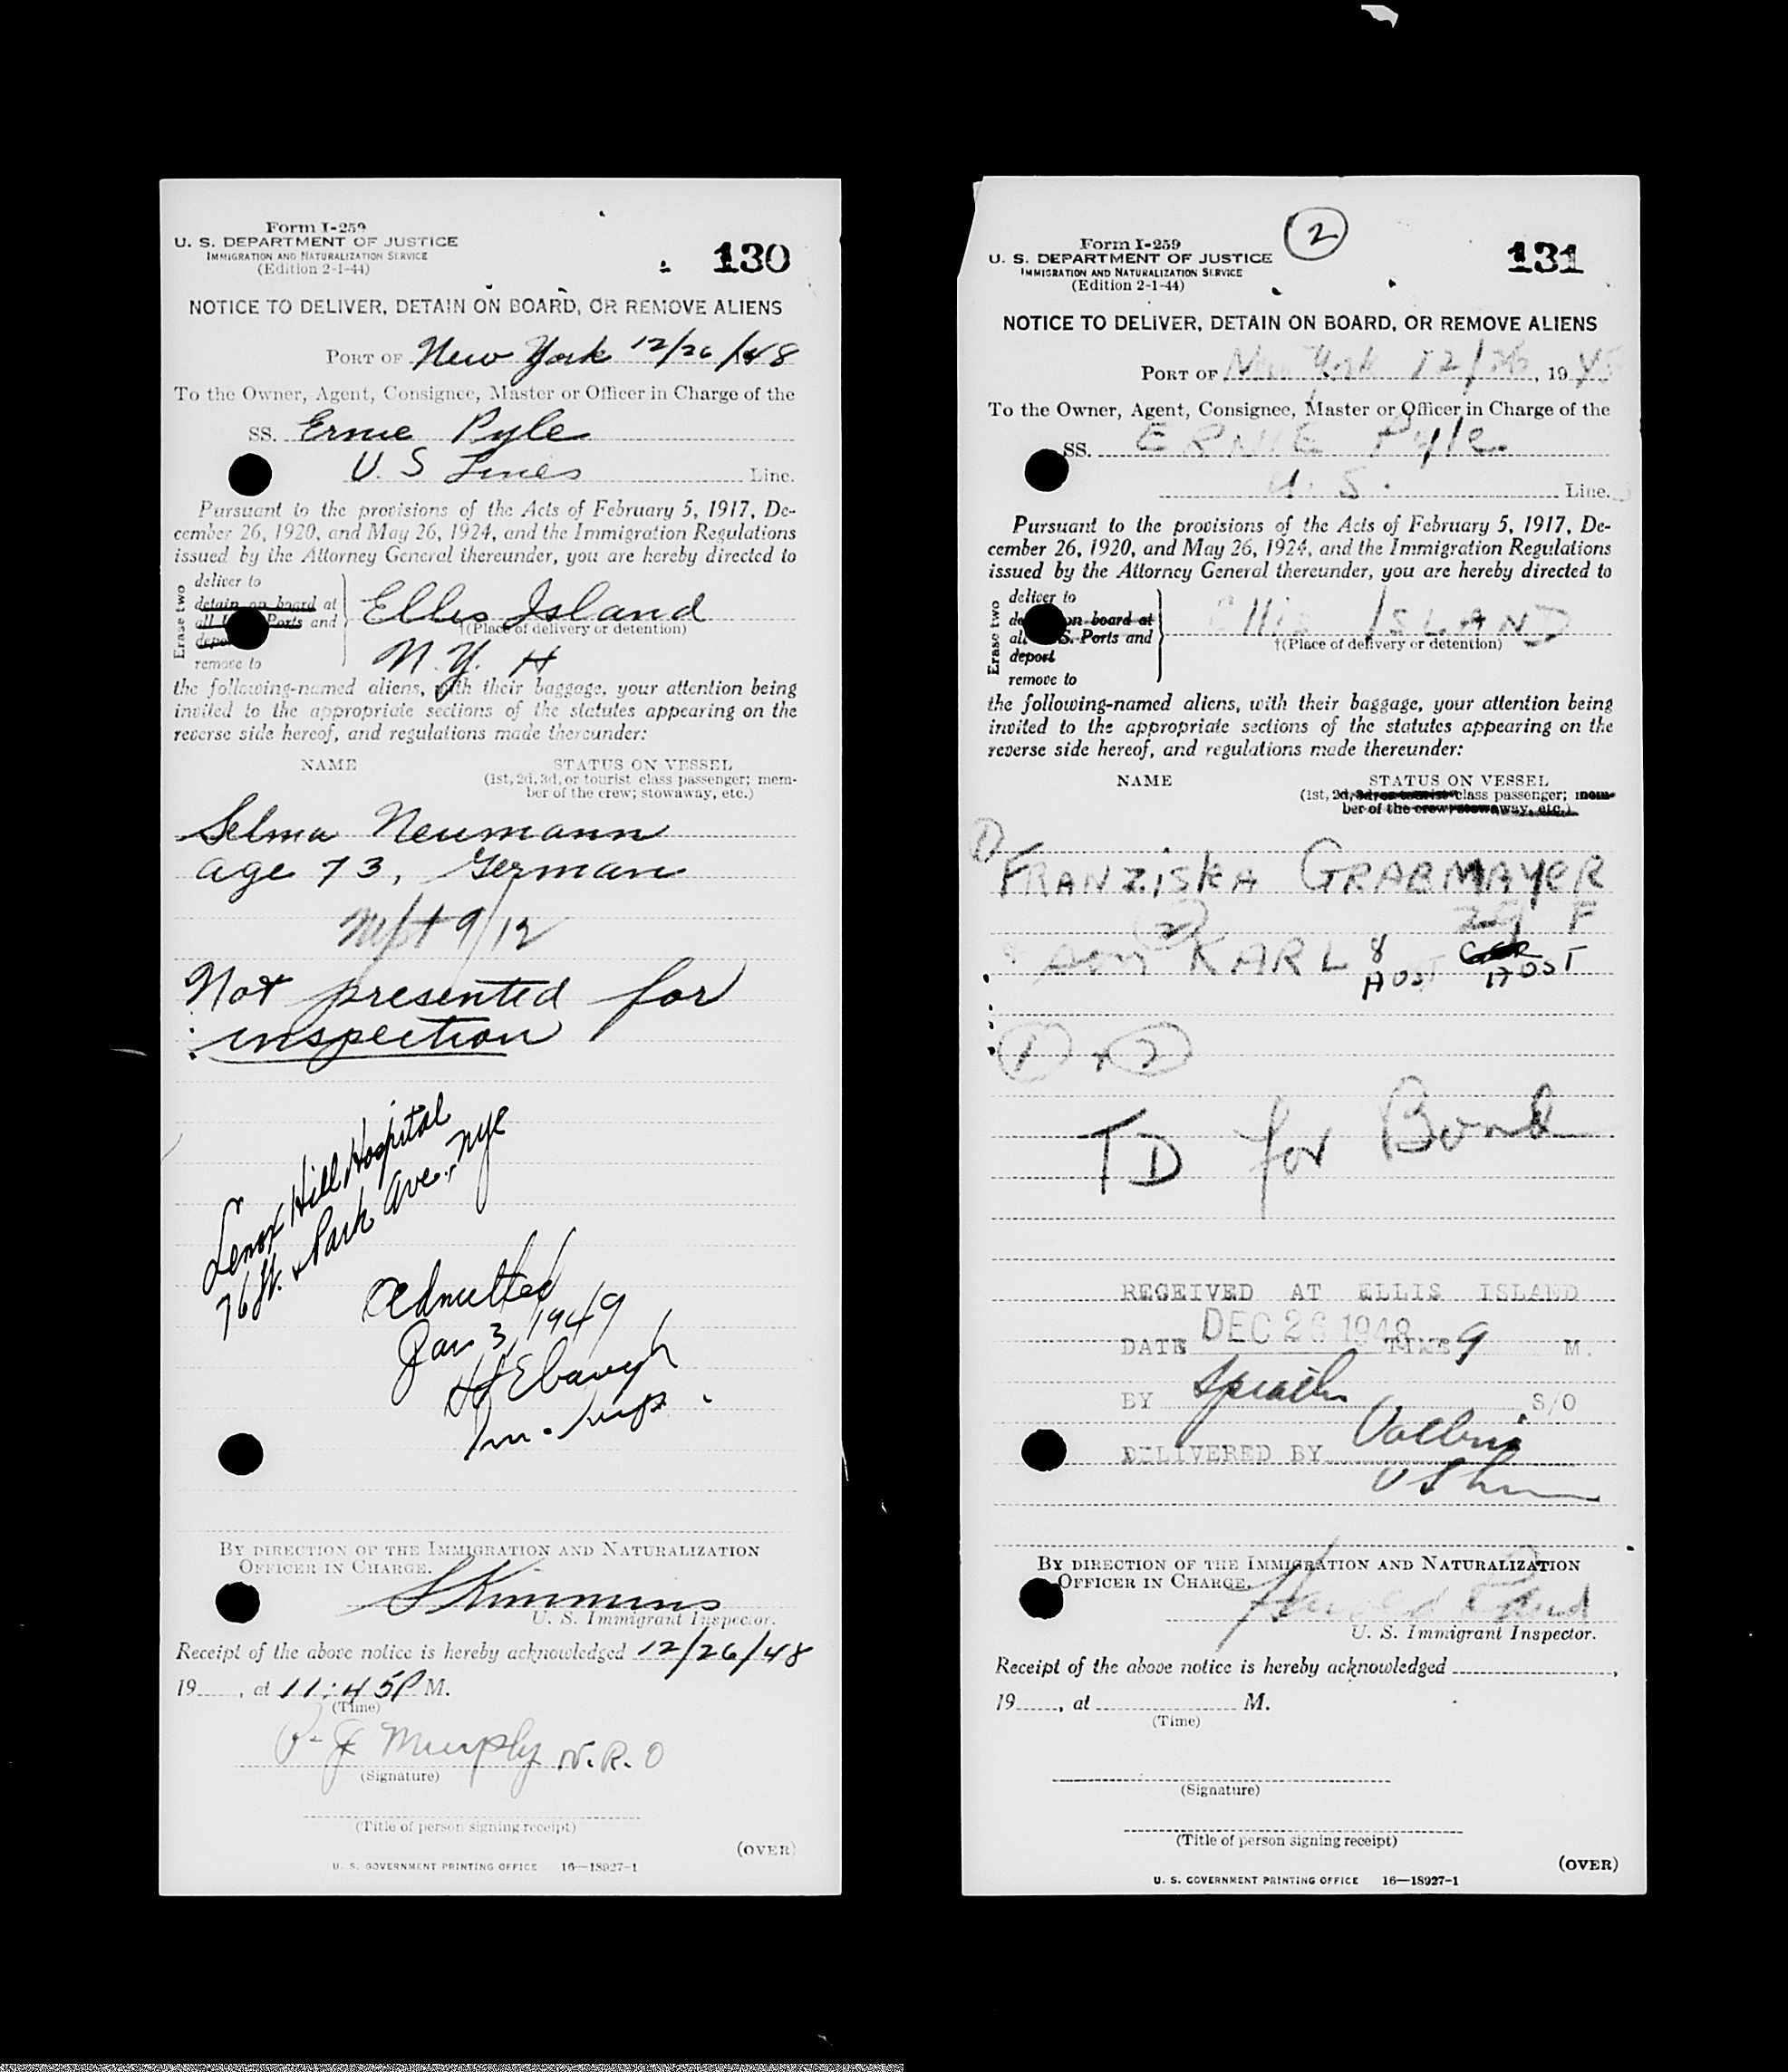 Form I-259
U. S. DEPARTMENT OF JUSTICE
IMMIGRATION AND NATURALIZATION SERVICE
(Edition 2-1-44)
130
NOTICE TO DELIVER, DETAIN ON BOARD, OR REMOVE ALIENS
PORT OF New York 12/26/48
To the Owner, Agent, Consignee, Master or Officer in Charge of the
SS. Ernie Pyle
U. S Lines Line.
Pursuant to the provisions of the Acts of February 5, 1917, De-
cember 26, 1920, and May 26, 1924, and the Immigration Regulations
issued by the Attorney General thereunder, you are hereby directed to
Erase two
deliver to
detain on board at
all Ports and
remove to
Ellis Island
†(Place of delivery or detention)
N. Y. H
the following-named aliens, with their baggage, your attention being
invited to the appropriate sections of the statutes appearing on the
reverse side hereof, and regulations made thereunder:
NAME STATUS ON VESSEL
(1st, 2d, 3d, or tourist class passenger; mem-
ber of the crew; stowaway, etc.)
Selma Neumann
age 73, German
9/12
Not presented for
inspection
Lenox Hill Hospital
76 St. & Park Ave., NYC
Admitted
Jan 3, 1949
BY DIRECTION OF THE IMMIGRATION AND NATURALIZATION
OFFICER IN CHARGE.
U. S. Immigrant Inspector.
Receipt of the above notice is hereby acknowledged 12/26/48
19 , at 11:45P M.
(Time)
P. J Murphy N. R. O
(Signature)
(Title of person signing receipt)
(OVER)
U. S. GOVERNMENT PRINTING OFFICE 16—18927-1
Form I-259
U. S. DEPARTMENT OF JUSTICE
IMMIGRATION AND NATURALIZATION SERVICE
(Edition 2-1-44)
2
131
NOTICE TO DELIVER, DETAIN ON BOARD, OR REMOVE ALIENS
PORT OF New York 12/26, 19 48
To the Owner, Agent, Consignee, Master or Officer in Charge of the
SS. ERNIE Pyle
U. S. Line.
Pursuant to the provisions of the Acts of February 5, 1917, De-
cember 26, 1920, and May 26, 1924, and the Immigration Regulations
issued by the Attorney General thereunder, you are hereby directed to
Erase two
deliver to
on board at
S. Ports and
deport
remove to
Ellis ISLAND
†(Place of delivery or detention)
the following-named aliens, with their baggage, your attention being
invited to the appropriate sections of the statutes appearing on the
reverse side hereof, and regulations made thereunder:
NAME STATUS ON VESSEL
(1st, 2d, 3d, or tourist class passenger; mem-
ber of the crew; stowaway, etc.)
1
FRANZISKA GRABMAYER
29 F
2
Son KARL 8
AUST AUST
1 + 2
TD for Bond
RECEIVED AT ELLIS ISLAND
DATE DEC 26 1948 TIME 9 M.
BY S/O
DELIVERED BY
BY DIRECTION OF THE IMMIGRATION AND NATURALIZATION
OFFICER IN CHARGE.
U. S. Immigrant Inspector.
Receipt of the above notice is hereby acknowledged ,
19 , at M.
(Time)
(Signature)
(Title of person signing receipt)
(OVER)
U. S. GOVERNMENT PRINTING OFFICE 16—18927-1